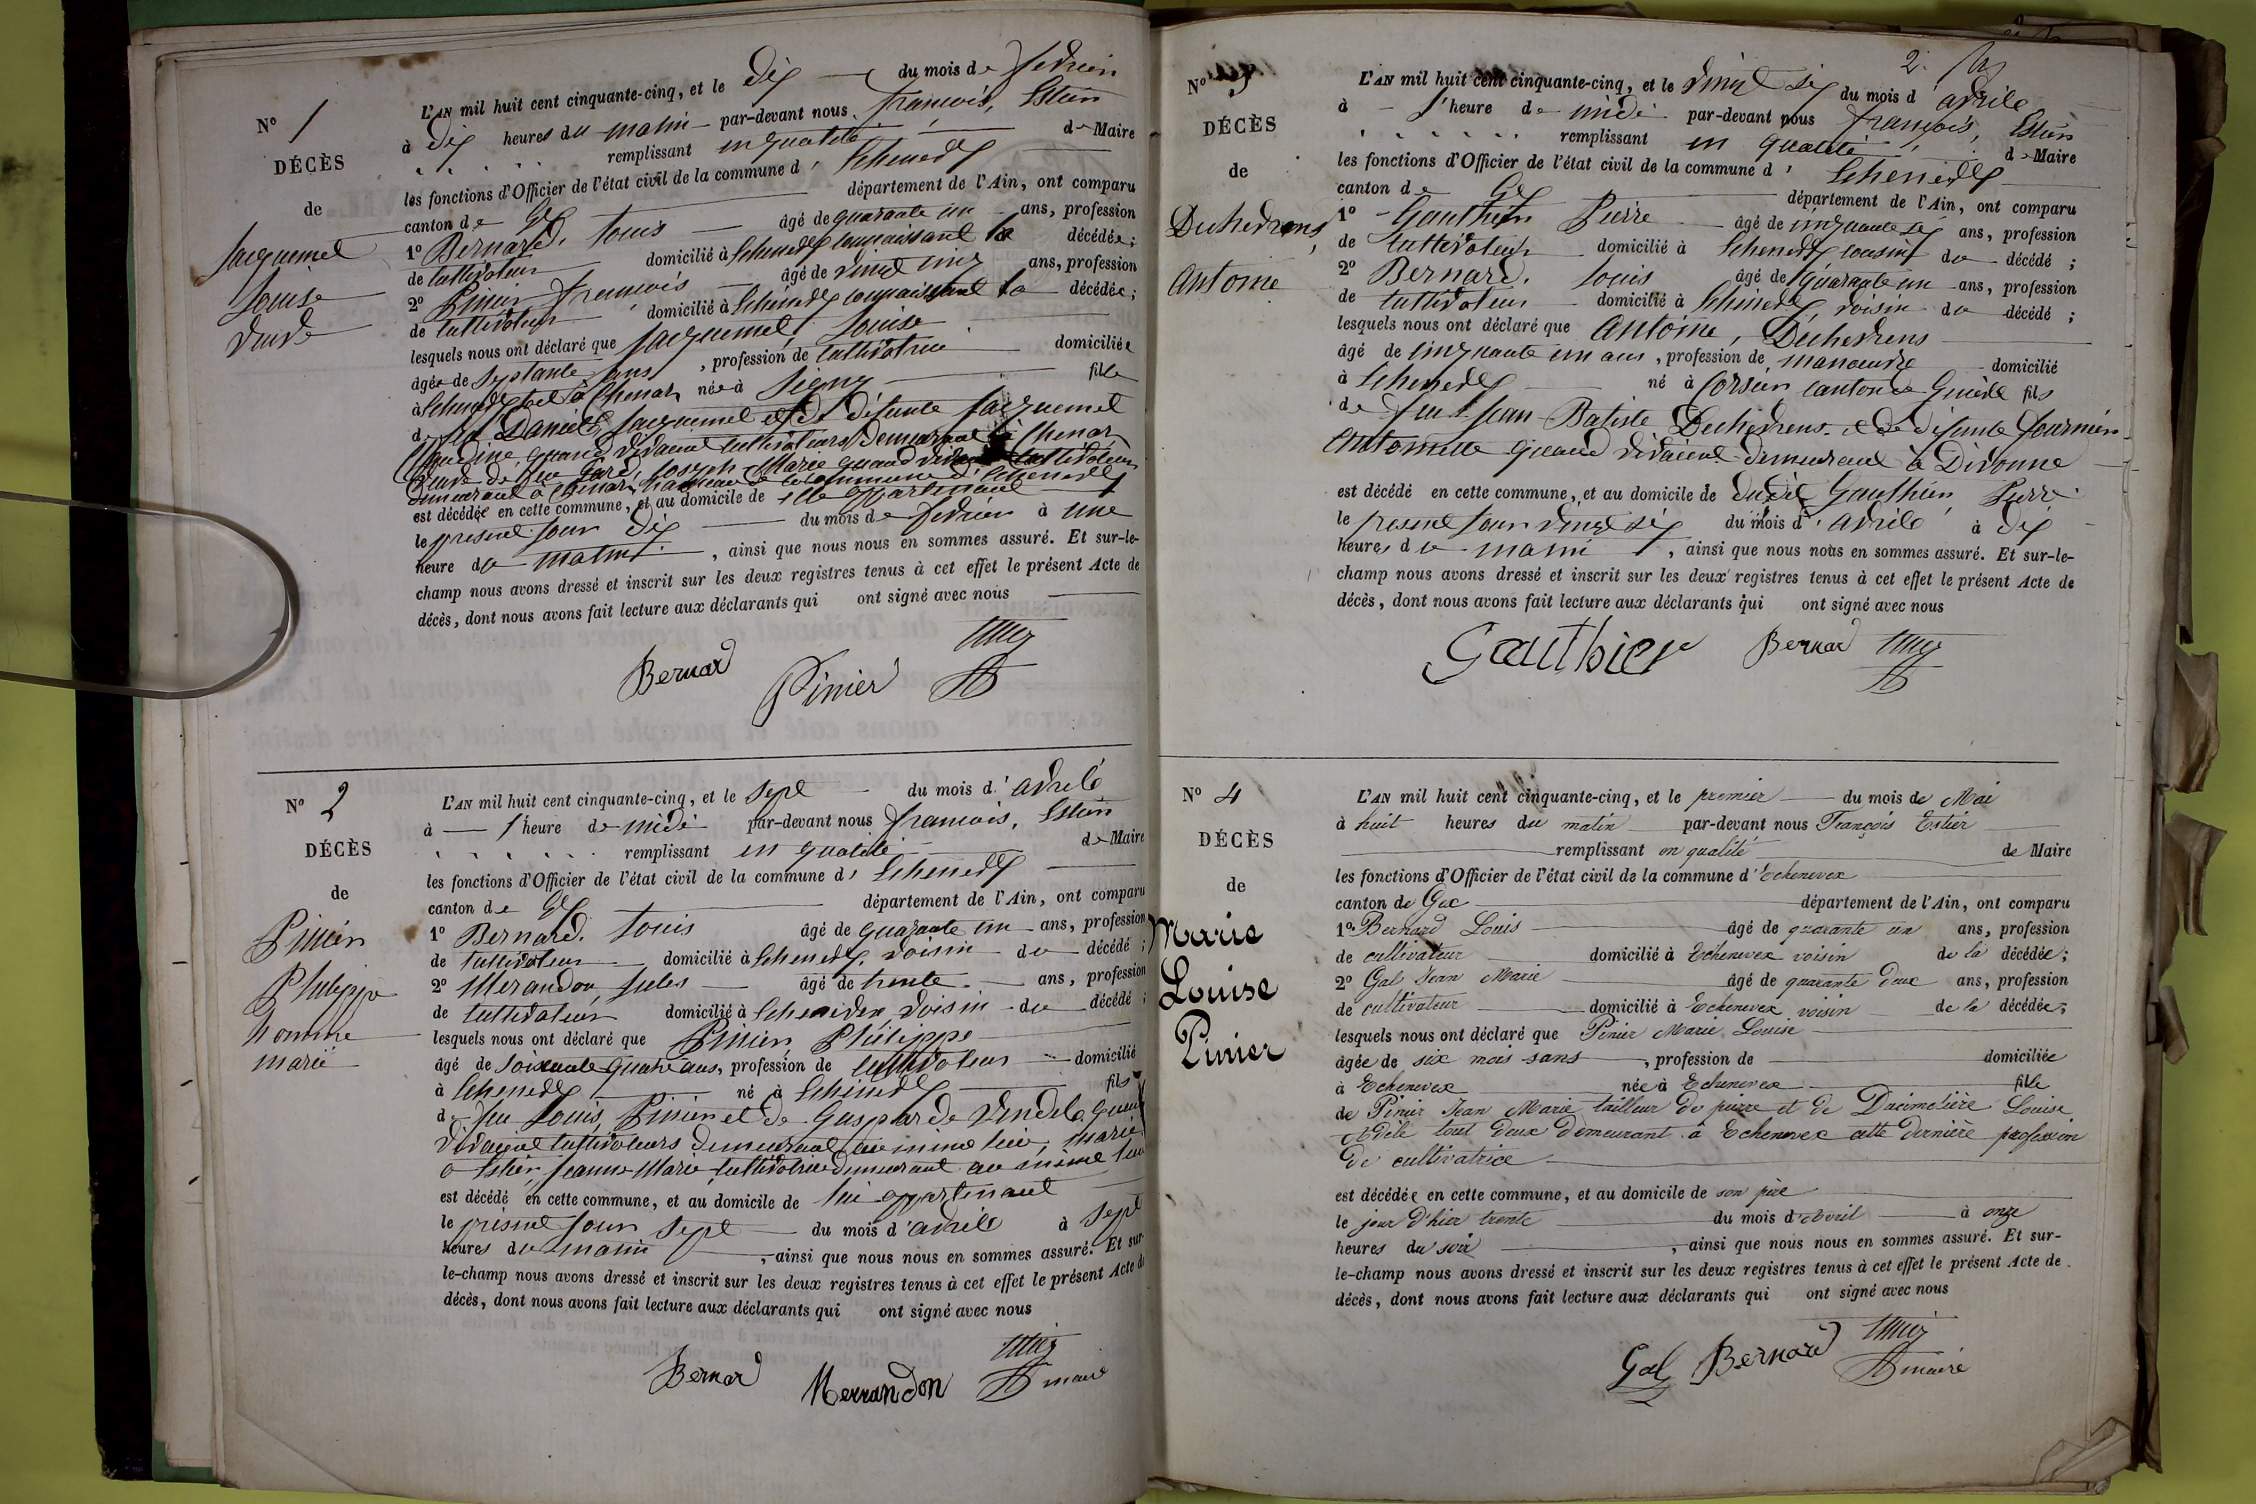 N° 1
DÉCÈS
de
Jacquemet
Louise
veuve
L'AN mil huit cent cinquante-cinq, et le dix du mois de février
à dix heures du matin par-devant nous François, Estier
remplissant en qualité de Maire
les fonctions d'Officier de l'état civil de la commune d' Echenevex
canton de Gex département de l'Ain, ont comparu
1° Bernard, Louis âgé de quarante un ans, profession
de cultivateur domicilié à Echenevex connaissant la décédée;
2° Pinier François âgé de vingt cinq ans, profession
de cultivateur domicilié à Echenevex connaissant la décédée;
lesquels nous ont déclaré que Jacquemet, Louise
âgée de septante ans, profession de cultivatrice domiciliée
à Echenevex née à fille
d feu Daniel, Jacquemet et de défunte Jacquemet
Claudine quand vivaient cultivateurs demeurant à Chenaz
veuve de feu Joseph Marie quand vivait cultivateur
demeurant à Chenaz, hameau de la commune d'Echenevex
est décédée en cette commune, et au domicile de elle appartenant
le présent jour dix du mois de février à une
heure du matin, ainsi que nous nous en sommes assuré. Et sur-le-
champ nous avons dressé et inscrit sur les deux registres tenus à cet effet le présent Acte de
décès, dont nous avons fait lecture aux déclarants qui ont signé avec nous
Bernard Pinier
N° 2
DÉCÈS
de
Pinier
Philippe
homme
marié
L'AN mil huit cent cinquante-cinq, et le sept du mois d'avrile
à 1 heure de midi par-devant nous François, Estier
remplissant en qualité de Maire
les fonctions d'Officier de l'état civil de la commune d' Echenevex
canton de Gex département de l'Ain, ont comparu
1° Bernard, Louis âgé de quarante un ans, profession
de cultivateur domicilié à Echenevex, voisin du décédé;
2° Merandon Jules âgé de trente ans, profession
de cultivateur domicilié à Echenevex voisin du décédé;
lesquels nous ont déclaré que Pinier, Philippe
âgé de soixante quatre ans, profession de cultivateur domicilié
à Echenevex né à Echenevex fils
de feu Louis, Pinier et de Gasparde Vendel quand
vivaient cultivateurs demeurant au même lieu, marié
à Estier, Jeanne Marie, cultivatrice demeurant au même lieu
est décédé en cette commune, et au domicile de lui appartenant
le présent jour sept du mois d'avrile à sept
heures du matin, ainsi que nous nous en sommes assuré. Et sur-
le-champ nous avons dressé et inscrit sur les deux registres tenus à cet effet le présent Acte de
décès, dont nous avons fait lecture aux déclarants qui ont signé avec nous
Bernard Merrandon maire
2
N° 3
DÉCÈS
de
Dechevrens,
Antoine
L'AN mil huit cent cinquante-cinq, et le vingt six du mois d'avrile
à 1 heure de midi par-devant nous François, Estier
remplissant en qualité de Maire
les fonctions d'Officier de l'état civil de la commune d' Echenevex
canton de Gex département de l'Ain, ont comparu
1° Gauthier Pierre âgé de cinquante six ans, profession
de cultivateur domicilié à Echenevex cousin du décédé;
2° Bernard, Louis âgé de quarante un ans, profession
de cultivateur domicilié à Echenevex, voisin du décédé;
lesquels nous ont déclaré que Antoine, Dechevrens
âgé de cinquante un ans, profession de manoeuvre domicilié
à Echenevex né à Corsier canton de Genève fils
de feu Jean Batiste Dechevrens et de défunte Fournier
Antoinette quand vivaient demeurant à Divonne
est décédé en cette commune, et au domicile de dudit Gauthier, Pierre
le présent jour vingt six du mois d'avrile à dix
heures du matin, ainsi que nous nous en sommes assuré. Et sur-le-
champ nous avons dressé et inscrit sur les deux registres tenus à cet effet le présent Acte de
décès, dont nous avons fait lecture aux déclarants qui ont signé avec nous
Gauthier Bernard
N° 4
DÉCÈS
de
Marie
Louise
Pinier
L'AN mil huit cent cinquante-cinq, et le premier du mois de Mai
à huit heures du matin par-devant nous François Estier
remplissant en qualité de Maire
les fonctions d'Officier de l'état civil de la commune d'Echenevex
canton de Gex département de l'Ain, ont comparu
1° Bernard Louis âgé de quarante un ans, profession
de cultivateur domicilié à Echenevex voisin de la décédée;
2° Gal Jean Marie âgé de quarante deux ans, profession
de cultivateur domicilié à Echenevex voisin de la décédée;
lesquels nous ont déclaré que Pinier Marie Louise
âgée de six mois sans, profession de domiciliée
à Echenevex née à Echenevex fille
de Pinier Jean Marie tailleur de pierre et de Dacimetière Louise
Adèle tout deux demeurant à Echenevex cette dernière profession
de cultivatrice
est décédée en cette commune, et au domicile de son père
le jour d'hier trente du mois d'Avril à onze
heures du soir, ainsi que nous nous en sommes assuré. Et sur-
le-champ nous avons dressé et inscrit sur les deux registres tenus à cet effet le présent Acte de
décès, dont nous avons fait lecture aux déclarants qui ont signé avec nous
Gal Bernard maire